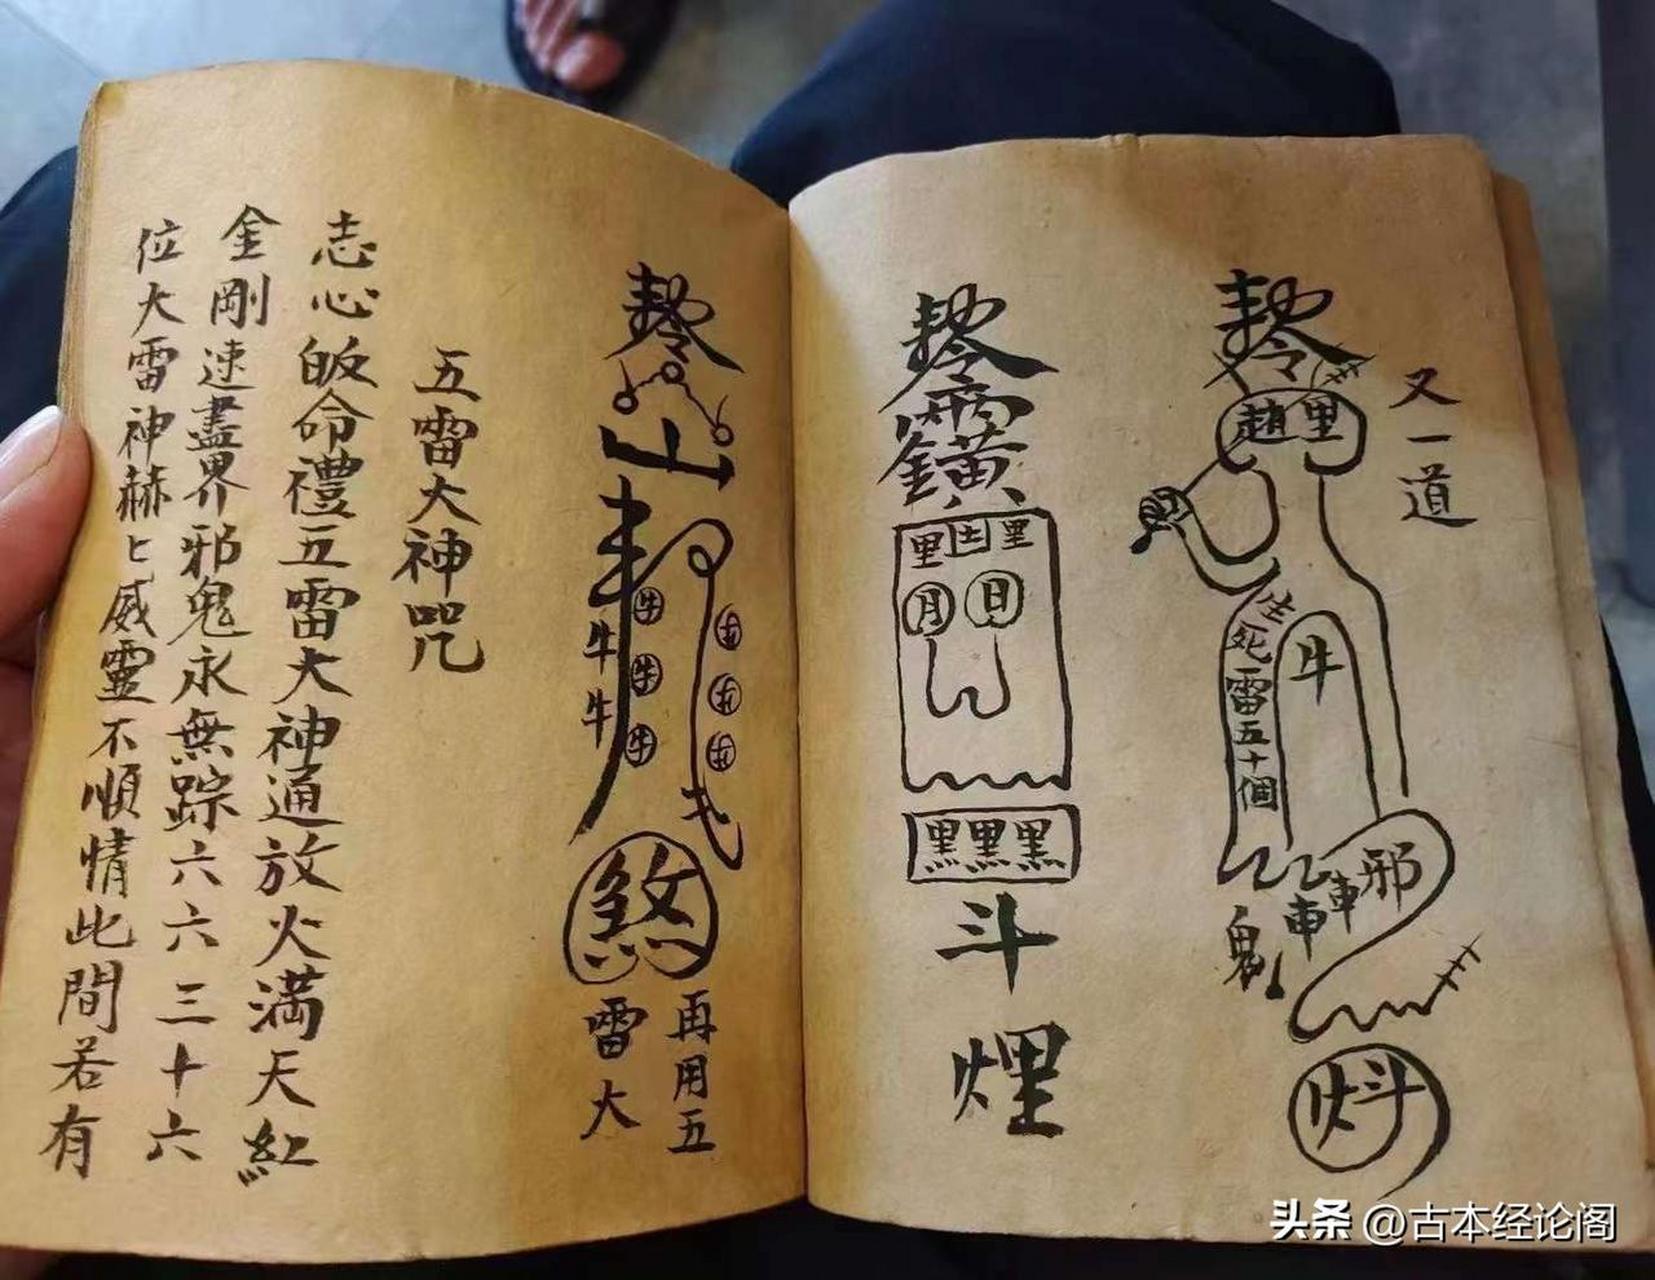 又一道
趙里
生死雷五十個
牛
邪
車車
鬼
里 里
月 日
黑黑黑
斗
煋
山
牛牛
牛牛牛
煞
再用五
雷大
五雷大神咒
志心皈命禮五雷大神通放火滿天紅
金剛速盡界邪鬼永無踪六六三十六
位大雷神赫匕威靈不順情此間若有
头条 @古本经论阁